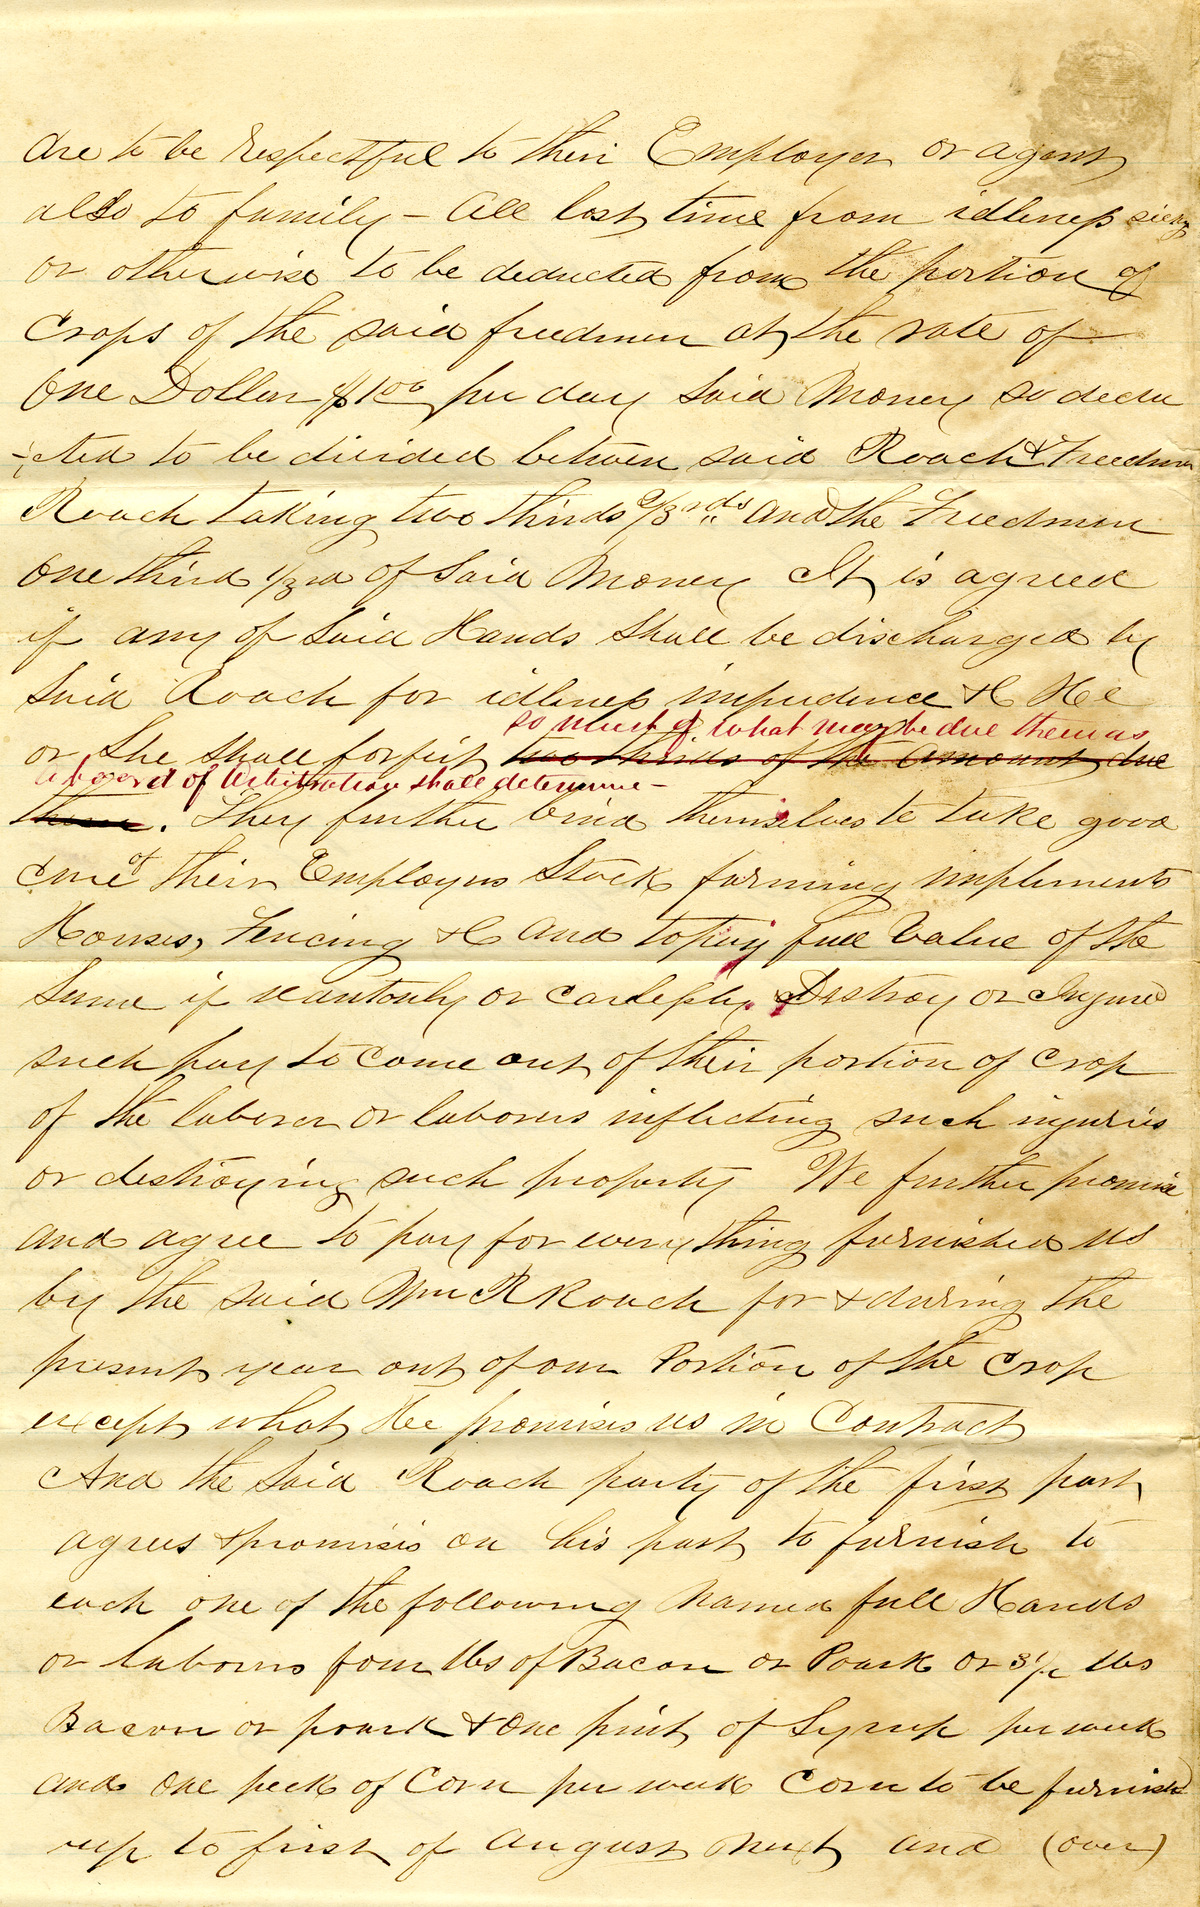 are to be respectful to their Employer or agent
also to family – All lost time from idleness sickness
or otherwise to be deducted from the portion of
Crops of the said freedmen at the rate of
One Dollar $1.00 per day Said Money so dedu
-cted to be divided between said Roach & Freedmen
Roach taking two thirds 2/3rds and the Freedmen
One third 1/3rd of Said Money It is agreed
if any of Said Hands Shall be discharged by
Said Roach for idleness impudence &C He
so much of what may be due them as
or She Shall forfeit two thirds of the amount due
a board of Arbitration shall determine –
them. They further bind themselves to take good
care of their Employers Stock farming implements
Houses, Fencing &C and to pay full Value of the
Same if wantonly or carlessly Destroy or Injured
such pay to come out of their portion of crop
of the laborer or laborers inflicting such injuries
or destroying such property We further promise
and agree to pay for every thing furnished us
by the said Wm R Roach for & during the
present year out of our Portion of the Crop
except what He promises us in Contract
And the Said Roach party of the first part
agrees & promisis on his part to furnish to
each one of the following Named full Hands
or laborers four lbs of Bacon or Poark or 3 1/2 lbs
Bacon or poark & One pint of Syrup per week
and One peck of Corn per week Corn to be furnished
up to first of August Next and (over)